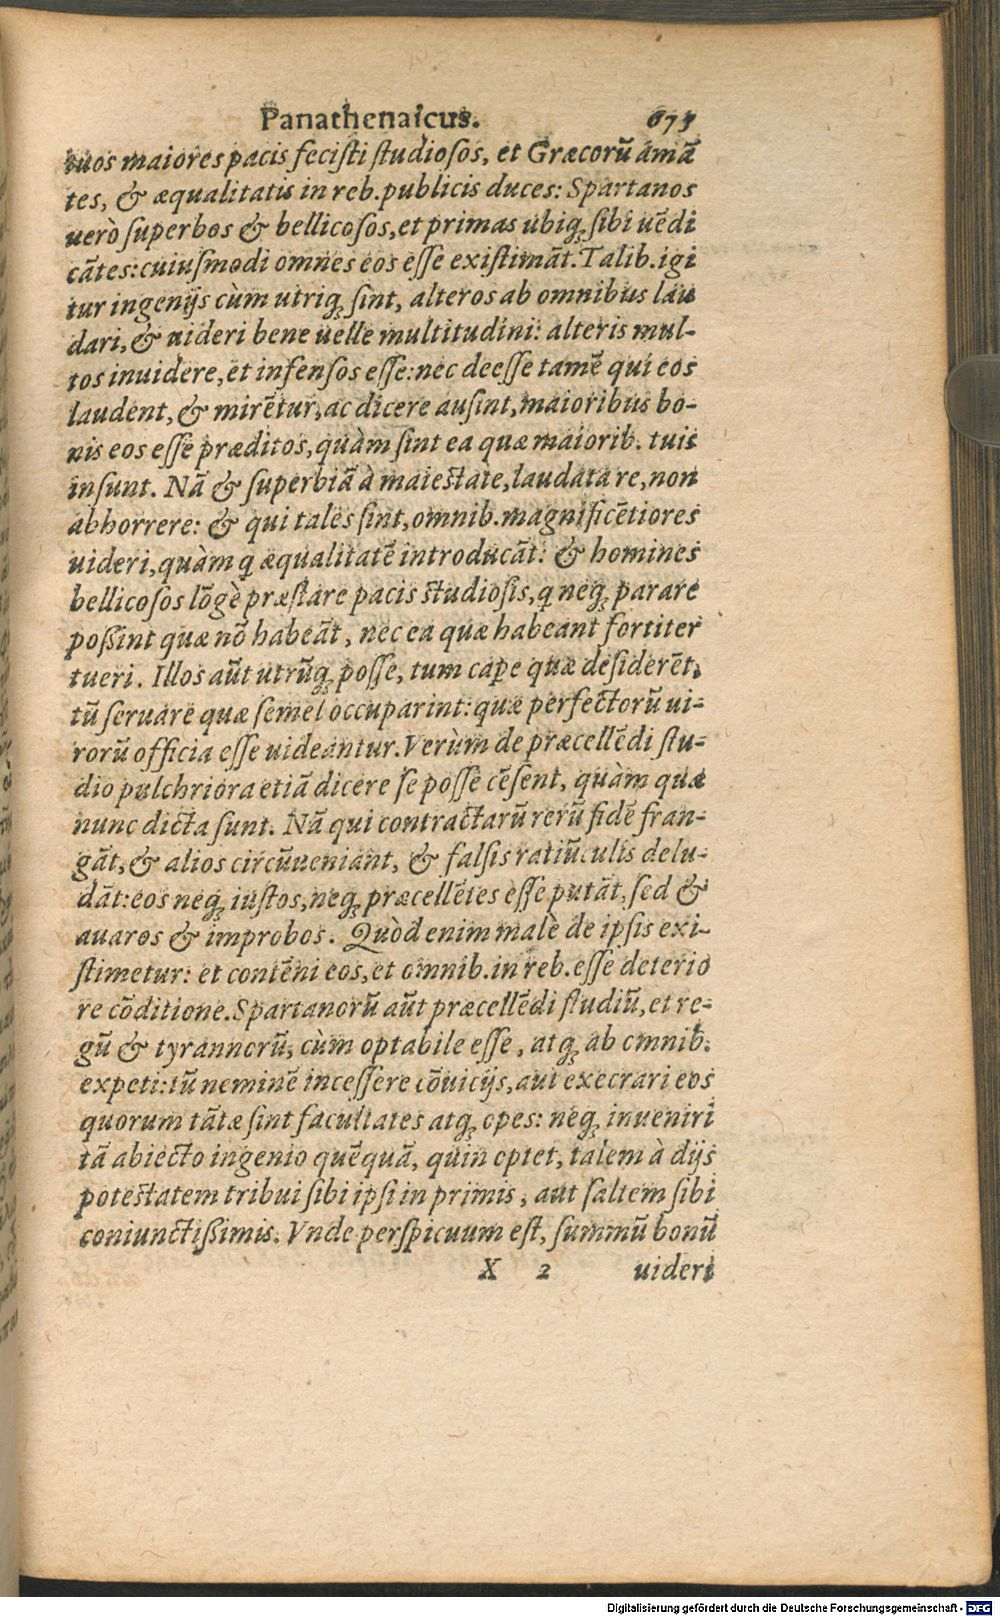 Panathenaicus. 675
tuos maiores pacis feciſti ſtudioſos, et Græcorũ amã
tes, & æqualitatis in reb. publicis duces: Spartanos
uerò ſuperbos & bellicoſos, et primas ubiq; ſibi uẽdi
cãtes: cuiuſmodi omnes eos eſſe exiſtimãt. Talib. igi
tur ingenijs cùm utriq; ſint, alteros ab omnibus lau
dari, & uideri bene uelle multitudini: alteris mul-
tos inuidere, et infenſos eſſe: nec deeſſe tamẽ qui eos
laudent, & mirẽtur, ac dicere auſint, maioribus bo-
nis eos eſſe præditos, quàm ſint ea quæ maiorib. tuis
inſunt. Nã & ſuperbiã à maieſtate, laudata re, non
abhorrere: & qui tales ſint, omnib. magnificẽtiores
uideri, quàm q̃ æqualitatẽ introducãt: & homines
bellicoſos lõgè præſtare pacis ſtudioſis, q̃ neq; parare
poßint quæ nõ habeãt, nec ea quæ habeant fortiter
tueri. Illos aũt utrũq; poſſe, tum caꝑe quæ deſiderẽt,
tũ ſeruare quæ ſemel occuparint: quæ perfectorũ ui-
rorũ officia eſſe uideantur. Verùm de præcellẽdi ſtu-
dio pulchriora etiã dicere ſe poſſe cẽſent, quàm quæ
nunc dicta ſunt. Nã qui contractarũ rerũ fidẽ fran-
gãt, & alios circũueniant, & falſis ratiũculis delu-
dãt: eos neq; iuſtos, neq; præcellẽtes eſſe putãt, ſed &
auaros & improbos. Quòd enim malè de ipſis exi-
ſtimetur: et contẽni eos, et omnib. in reb. eſſe deterio
re cõditione. Spartanorũ aũt præcellẽdi ſtudiũ, et re-
gũ & tyrannorũ, cùm optabile eſſe, atq; ab omnib.
expeti: tũ neminẽ inceſſere cõuicijs, aut execrari eos
quorum tãtæ ſint facultates atq; opes: neq; inueniri
tã abiecto ingenio quẽquã, quin optet, talem à dijs
poteſtatem tribui ſibi ipſi in primis, aut ſaltem ſibi
coniunctißimis. Vnde perſpicuum eſt, ſummũ bonũ
X 2 uideri
Digitalisierung gefördert durch die Deutsche Forschungsgemeinschaft - DFG